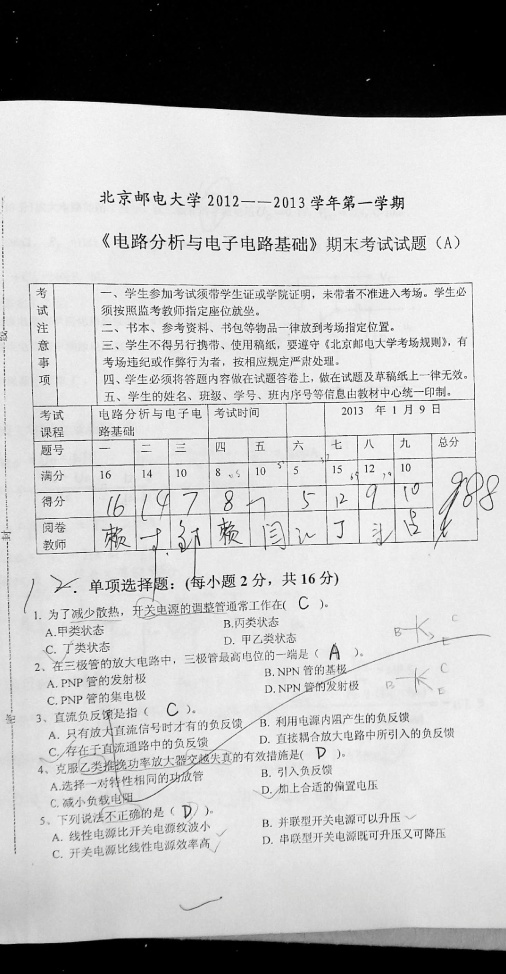 北京邮电大学2012——2013学年第一学期
《电路分析与电子电路基础》期末考试试题（A）
考试注意事项
一、学生参加考试须带学生证或学院证明，未带者不准进入考场。学生必
须按照监考教师指定座位就坐。
二、书本、参考资料、书包等物品一律放到考场指定位置。
三、学生不得另行携带、使用稿纸，要遵守《北京邮电大学考场规则》，有
考场违纪或作弊行为者，按相应规定严肃处理。
四、学生必须将答题内容做在试题答卷上，做在试题及草稿纸上一律无效。
五、学生的姓名、班级、学号、班内序号等信息由教材中心统一印制。
考试课程 电路分析与电子电路基础 考试时间 2013 年 1 月 9 日
题号 一 二 三 四 五 六 七 八 九 总分
满分 16 14 10 8 10 5 15 12 10
得分 16 14 7 8 7 5 12 9 10 88
阅卷教师 赖 闫 丁
一. 单项选择题：(每小题 2 分，共 16 分)
1. 为了减少散热，开关电源的调整管通常工作在( C )。
A.甲类状态 B.丙类状态
C. 丁类状态 D. 甲乙类状态
2、在三极管的放大电路中，三极管最高电位的一端是（ A ）。
A. PNP 管的发射极 B. NPN 管的基极
C. PNP 管的集电极 D. NPN 管的发射极
B C E
B C E
3、直流负反馈是指（ C ）。
A. 只有放大直流信号时才有的负反馈 B. 利用电源内阻产生的负反馈
C. 存在于直流通路中的负反馈 D. 直接耦合放大电路中所引入的负反馈
4、克服乙类推挽功率放大器交越失真的有效措施是( D )。
A.选择一对特性相同的功放管 B. 引入负反馈
C. 减小负载电阻 D. 加上合适的偏置电压
5、下列说法不正确的是（ D ）。
A. 线性电源比开关电源纹波小 B. 并联型开关电源可以升压
C. 开关电源比线性电源效率高 D. 串联型开关电源既可升压又可降压